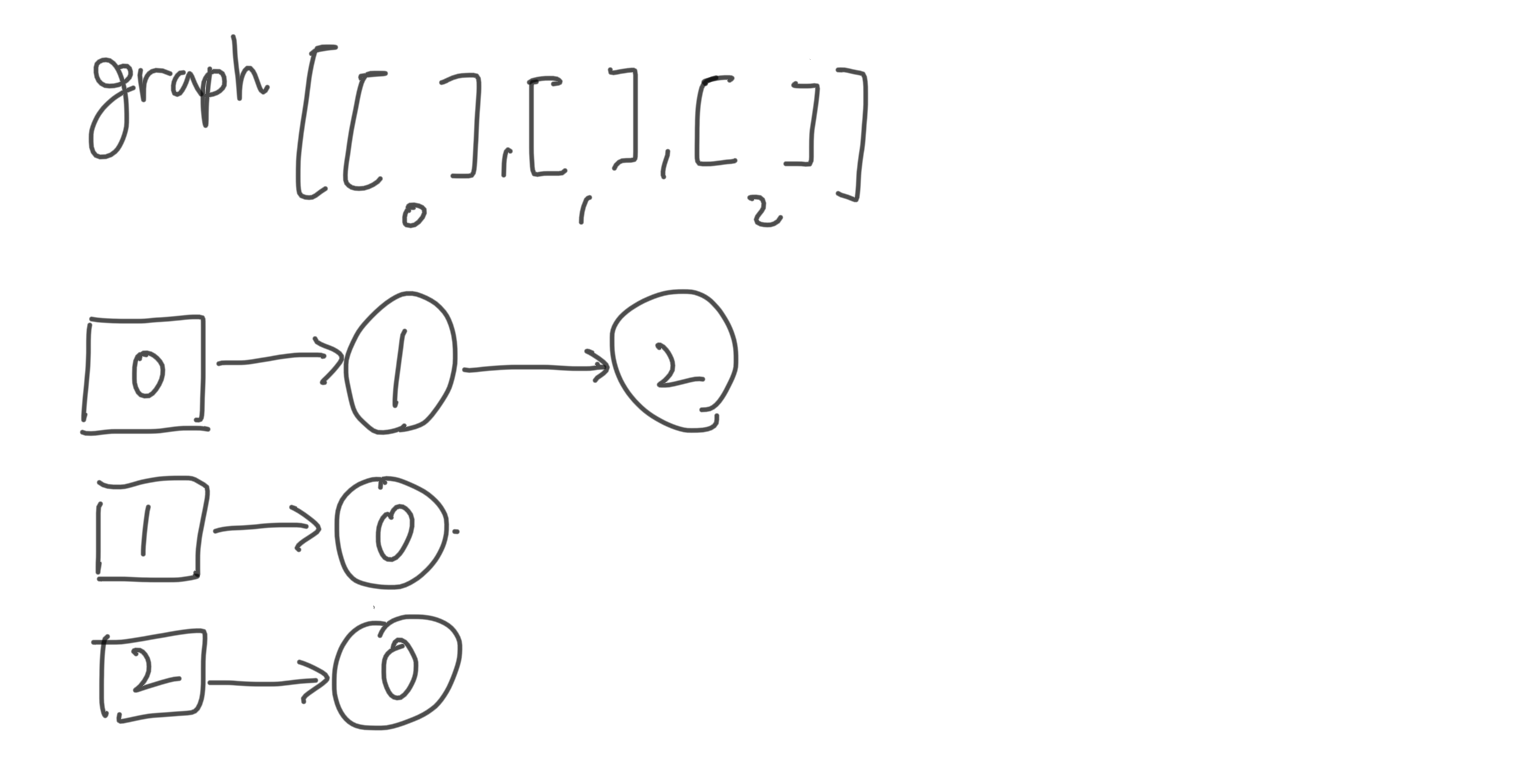 graph [[ ], [ ], [ ]]
0 1 2
0 → 1 → 2
1 → 0
2 → 0